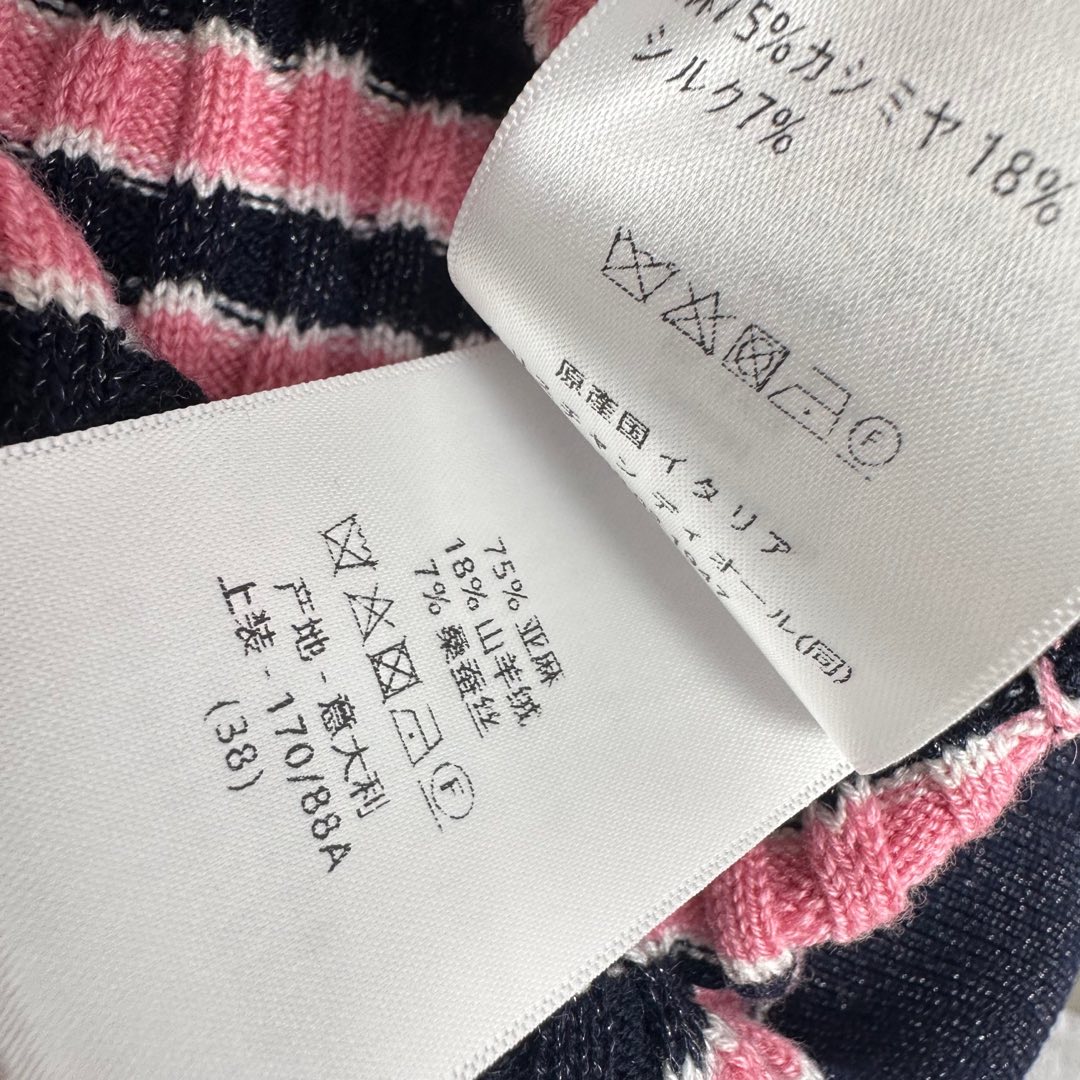 75%カシミヤ 18%
シルク7%
F
原産国イタリア
75% 亚麻
18% 山羊绒
7% 桑蚕丝
F
产地 - 意大利
上装 - 170/88A
(38)